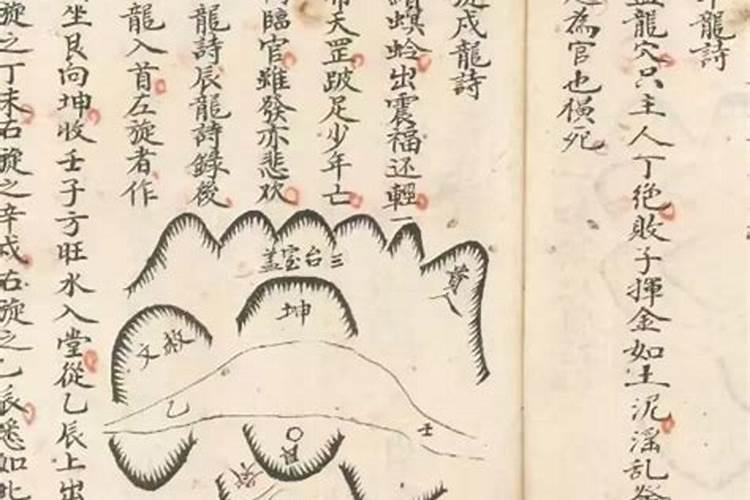 龍詩
龍穴只主人丁絕敗子揮金如土泥淫乱
為官也橫死
戌龍詩
螟蛉出震福还輕
天罡跛足少年亡
臨官雖發亦悲欢
龍詩辰龍詩錄後
龍入首左旋者作
坐艮向坤收壬子方旺水入堂從乙辰上出
旋之丁未右旋之辛戌右旋之乙辰悉如此
三台宝盖
坤
贵人
文
乙
壬
艮